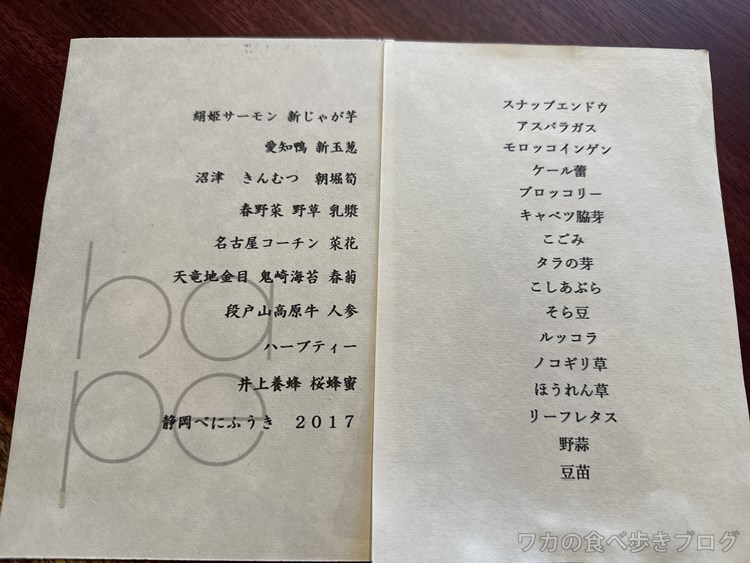 絹姫サーモン 新じゃが芋
愛知鴨 新玉葱
沼津 きんむつ 朝堀筍
春野菜 野草 乳漿
名古屋コーチン 菜花
天竜地金目 鬼崎海苔 春菊
段戸山高原牛 人参
ハーブティー
井上養蜂 桜蜂蜜
静岡べにふうき 2017
ha
pe
スナップエンドウ
アスパラガス
モロッコインゲン
ケール蕾
ブロッコリー
キャベツ脇芽
こごみ
タラの芽
こしあぶら
そら豆
ルッコラ
ノコギリ草
ほうれん草
リーフレタス
野蒜
豆苗
ワカの食べ歩きブログ